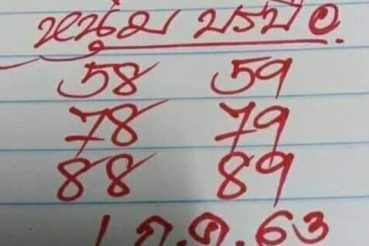 หนุ่ม บรบือ
58 59
78 79
88 89
1 ก.ค. 63